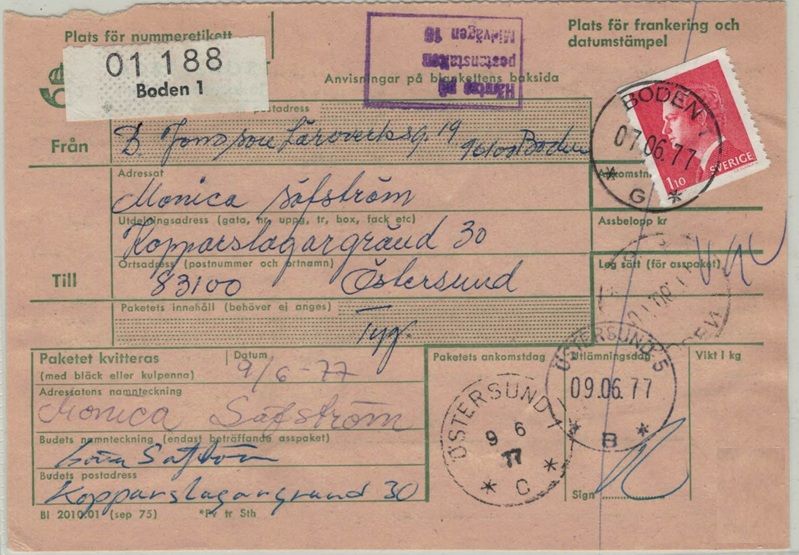 Plats för nummeretikett
01 188
Boden 1
Hämtas på
postanstalten
Midvägen 16
Plats för frankering och
datumstämpel
Anvisningar på blankettens baksida
BODEN 1
07.06.77
* G *
SVERIGE
1.10
postadress
Från
Läroverksg. 19
96100 Boden
Ankomstnr
Adressat
Monica Säfström
Utdelningsadress (gata, nr, uppg, tr, box, fack etc)
Assbelopp kr
Kopparslagargränd 30
Till
Ortsadress (postnummer och ortnamn)
83100 Östersund
Log sätt (för asspaket)
Paketets innehåll (behöver ej anges)
Tyg.
Paketet kvitteras
(med bläck eller kulpenna)
Datum
9/6-77
Paketets ankomstdag
Utlämningsdag
Vikt i kg
ÖSTERSUND 5
09.06.77
* B *
ÖSTERSUND 1
9 6
77
* C *
Adressatens namnteckning
Monica Säfström
Budets namnteckning (endast beträffande asspaket)
Säfström
Budets postadress
Kopparslagargränd 30
Sign
Bl 2010.01 (sep 75)
*Fv tr Sth